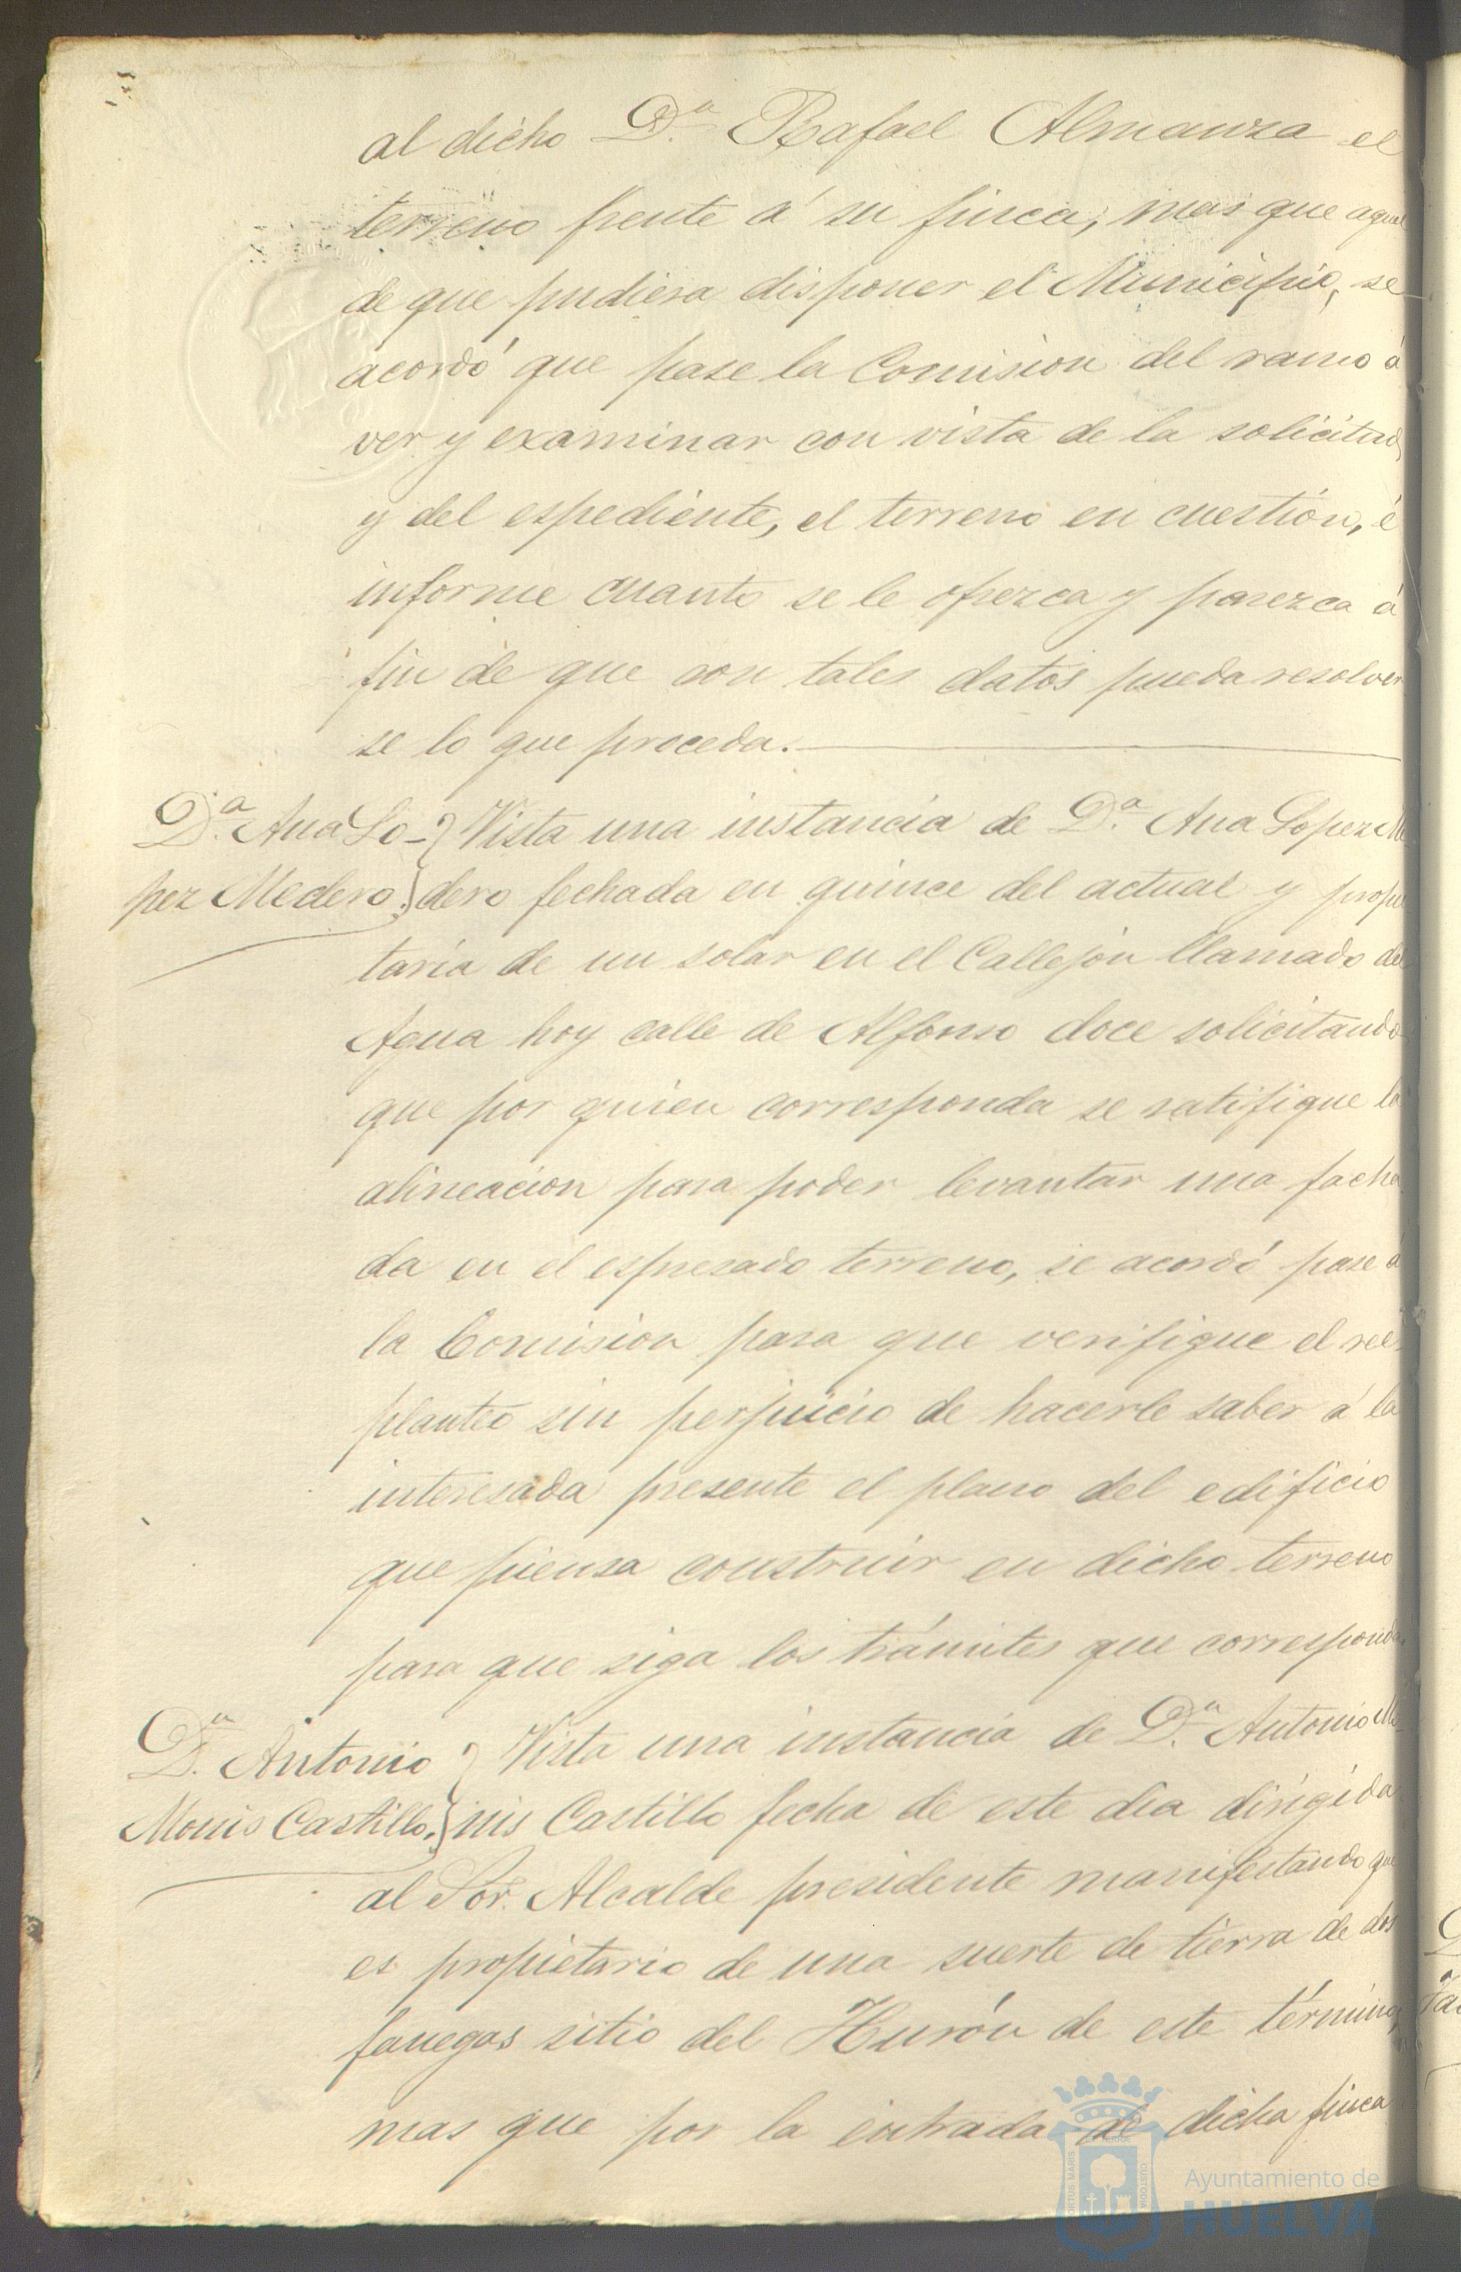 al dicho D.n Rafael Almanza el
terreno frente á su finca, mas que aquel
de que pudiera disponer el Municipio, se
acordó que pase la Comision del ramo á
ver y examinar con vista de la solicitud
y del espediente, el terreno en cuestión, é
informe cuanto se le ofrezca y parezca á
fin de que con tales datos pueda resolver
se lo que proceda.
D.a Ana Lo-
pez Medero.
Vista una instancia de D.a Ana Lopez Me
dero fechada en quince del actual y propie
taria de un solar en el Callejón llamado del
Agua hoy calle de Alfonso doce solicitando
que por quien corresponda se ratifique la
alineacion para poder levantar una facha
da en el espresado terreno, se acordó pase á
la Comision para que verifique el ree
planteo sin perjuicio de hacerle saber á la
interesada presente el plano del edificio
que piensa construir en dicho terreno
para que siga los trámites que corresponda.
D.n Antonio
Monis Castillo.
Vista una instancia de D.n Antonio Mo
nis Castillo fecha de este dia dirigida
al Sor. Alcalde presidente manifestando que
es propietario de una suerte de tierra de dos
fanegas sitio del Hurón de este término,
mas que por la entrada de dicha finca
Ayuntamiento de
HUELVA